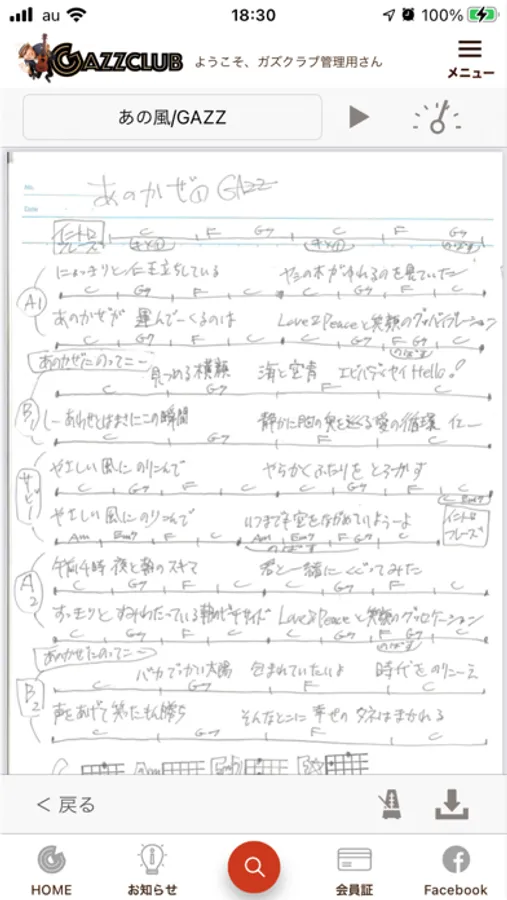 au 18:30 100%
GAZZCLUB ようこそ、ガズクラブ管理用さん メニュー
あの風/GAZZ
No.
Date
あのかぜ① GAZZ
イントロフレーズ C F G7 C F G7
A1
によっきりと 仁王立ちしている ヤシの木がゆれるのを見ていた
C G7 F C C G7 F C
あのかぜが 運んでーくるのは Love & Peaceと笑顔のグッバイブレーション
C G7 F C C G7 F G7 C
のばす
あのかぜにのってこー
B1
見つめる横顔 海と空青 Hello!
C G7 F C
しーあわせとはまさにこの瞬間 静かに胸の奥を巡る愛の循環
C G7 F C
サビ
やさしい風に のりこんで やらかくふたりを とろかす
C G7 F C C G7 F C Em7
やさしい風に のりこんで いつまでも空をながめていようーよ
イントロフレーズ
Am Em7 F C Am Em7 F G7 C
のばす
A2
午前4時 夜と朝のスキマ 君と一緒に くぐってみた
C G7 F C C G7 F C
すっきりと すみわたっている朝のビーチサイド Love & Peaceと笑顔の
C G7 F C C G7 F G7 C
のばす
あのかぜにのってこー
B2
バカでっかい太陽 包まれていたいよ 時代をのりこーえ
C G7 F C
声をあげて笑ったもん勝ち そんなとこに 幸せの タネはまかれる
C G7 F C
C Am
< 戻る
HOME お知らせ 会員証 Facebook